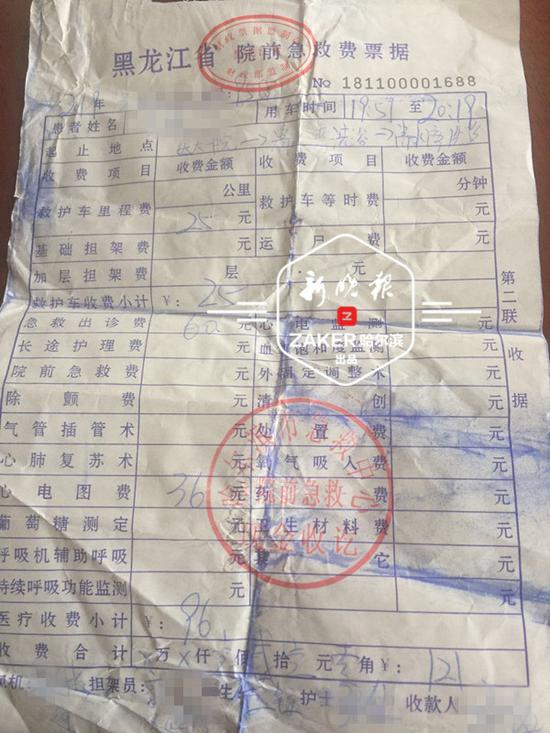 黑龙江省 院前急救费票据
No 181100001688
年 用车时间 19:57 至 20:19
患者姓名
起止地点
收费项目 收费金额 收费项目 收费金额
救护车里程费 公里 25 元 救护车等时费 分钟 元
基础担架费 元 运尸费 元
加层担架费 层 元
救护车收费小计 ¥: 25
急救出诊费 60 元 心电监测
长途护理费 元 血 饱和度监测
院前急救费 元 外固定调整术
除颤费 元 清创 元
气管插管术 元 处置费 元
心肺复苏术 元 氧气吸入费 元
心电图费 36 元 药 元
葡萄糖测定 元 卫生材料费 元
呼吸机辅助呼吸 元 其它 元
持续呼吸功能监测 元 元
医疗收费小计 ¥: 96
收费合计 万 仟 佰 拾 元 角 ¥: 121
司机: 担架员: 生 护士 收款人
第二联 收据
新晚报
ZAKER哈尔滨
出品
院前急救